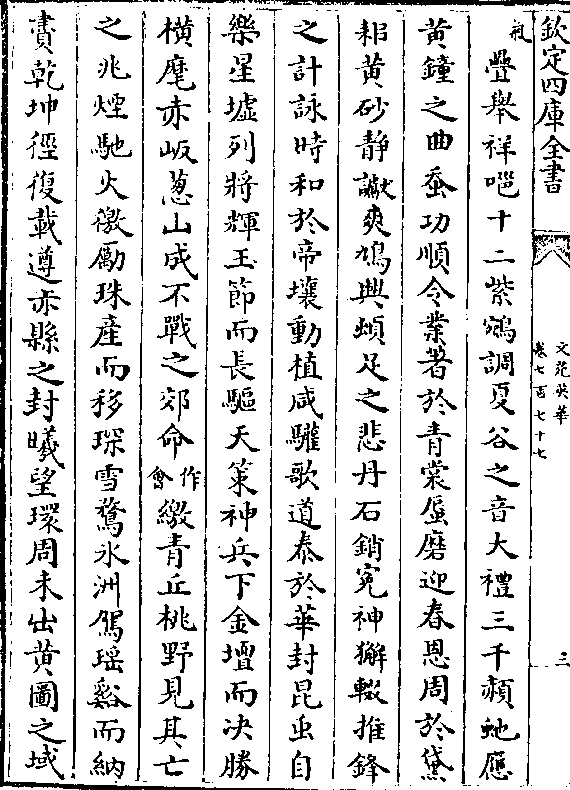 欽定四庫全書
文苑英華
卷七百七十七
三
氣
疊舉祥嗈十二紫鵷調夏谷之音大禮三千頳虵應
黄鐘之曲蚕功順令業著於青裳蜃磨迎春恩周於黛
耜黄砂静讞爽鳩興蝢足之悲丹石銷寃神獬輟推鋒
之計詠時和於帝壤動植咸驩歌道泰於華封昆虫自
樂星墟列將輝玉節而長驅天策神兵下金壇而决勝
横麾赤岅葱山成不戰之郊命作會繳青丘桃野見其亡
之兆煙馳火徼勵珠産而移琛雪鶩氷洲駕瑶谿而納
賮乾坤徑復載遵赤縣之封曦望環周未出黄圖之域